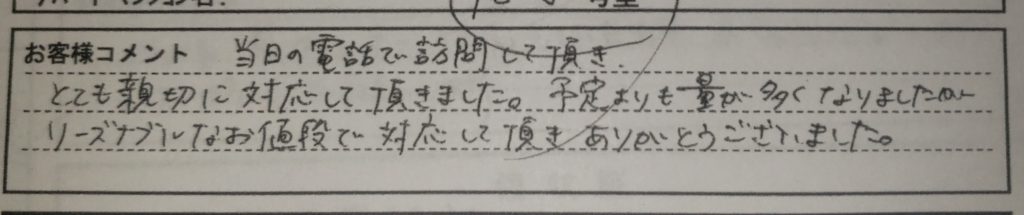 お客様コメント 当日の電話で訪問して頂き.
とても親切に対応して頂きました。予定よりも量が多くなりましたが
リーズナブルなお値段で対応して頂きありがとうございました。